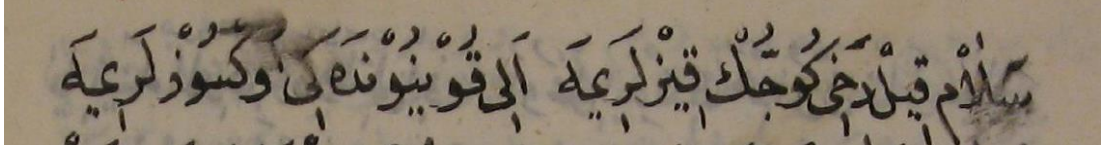 سَلَامْ قِيلْ دَخِى كُوجُّكْ قِيزْلَرِيمَه اَلِى قُوْينُونْدَه كِى اُوكْسُوزْلَرِيمَه